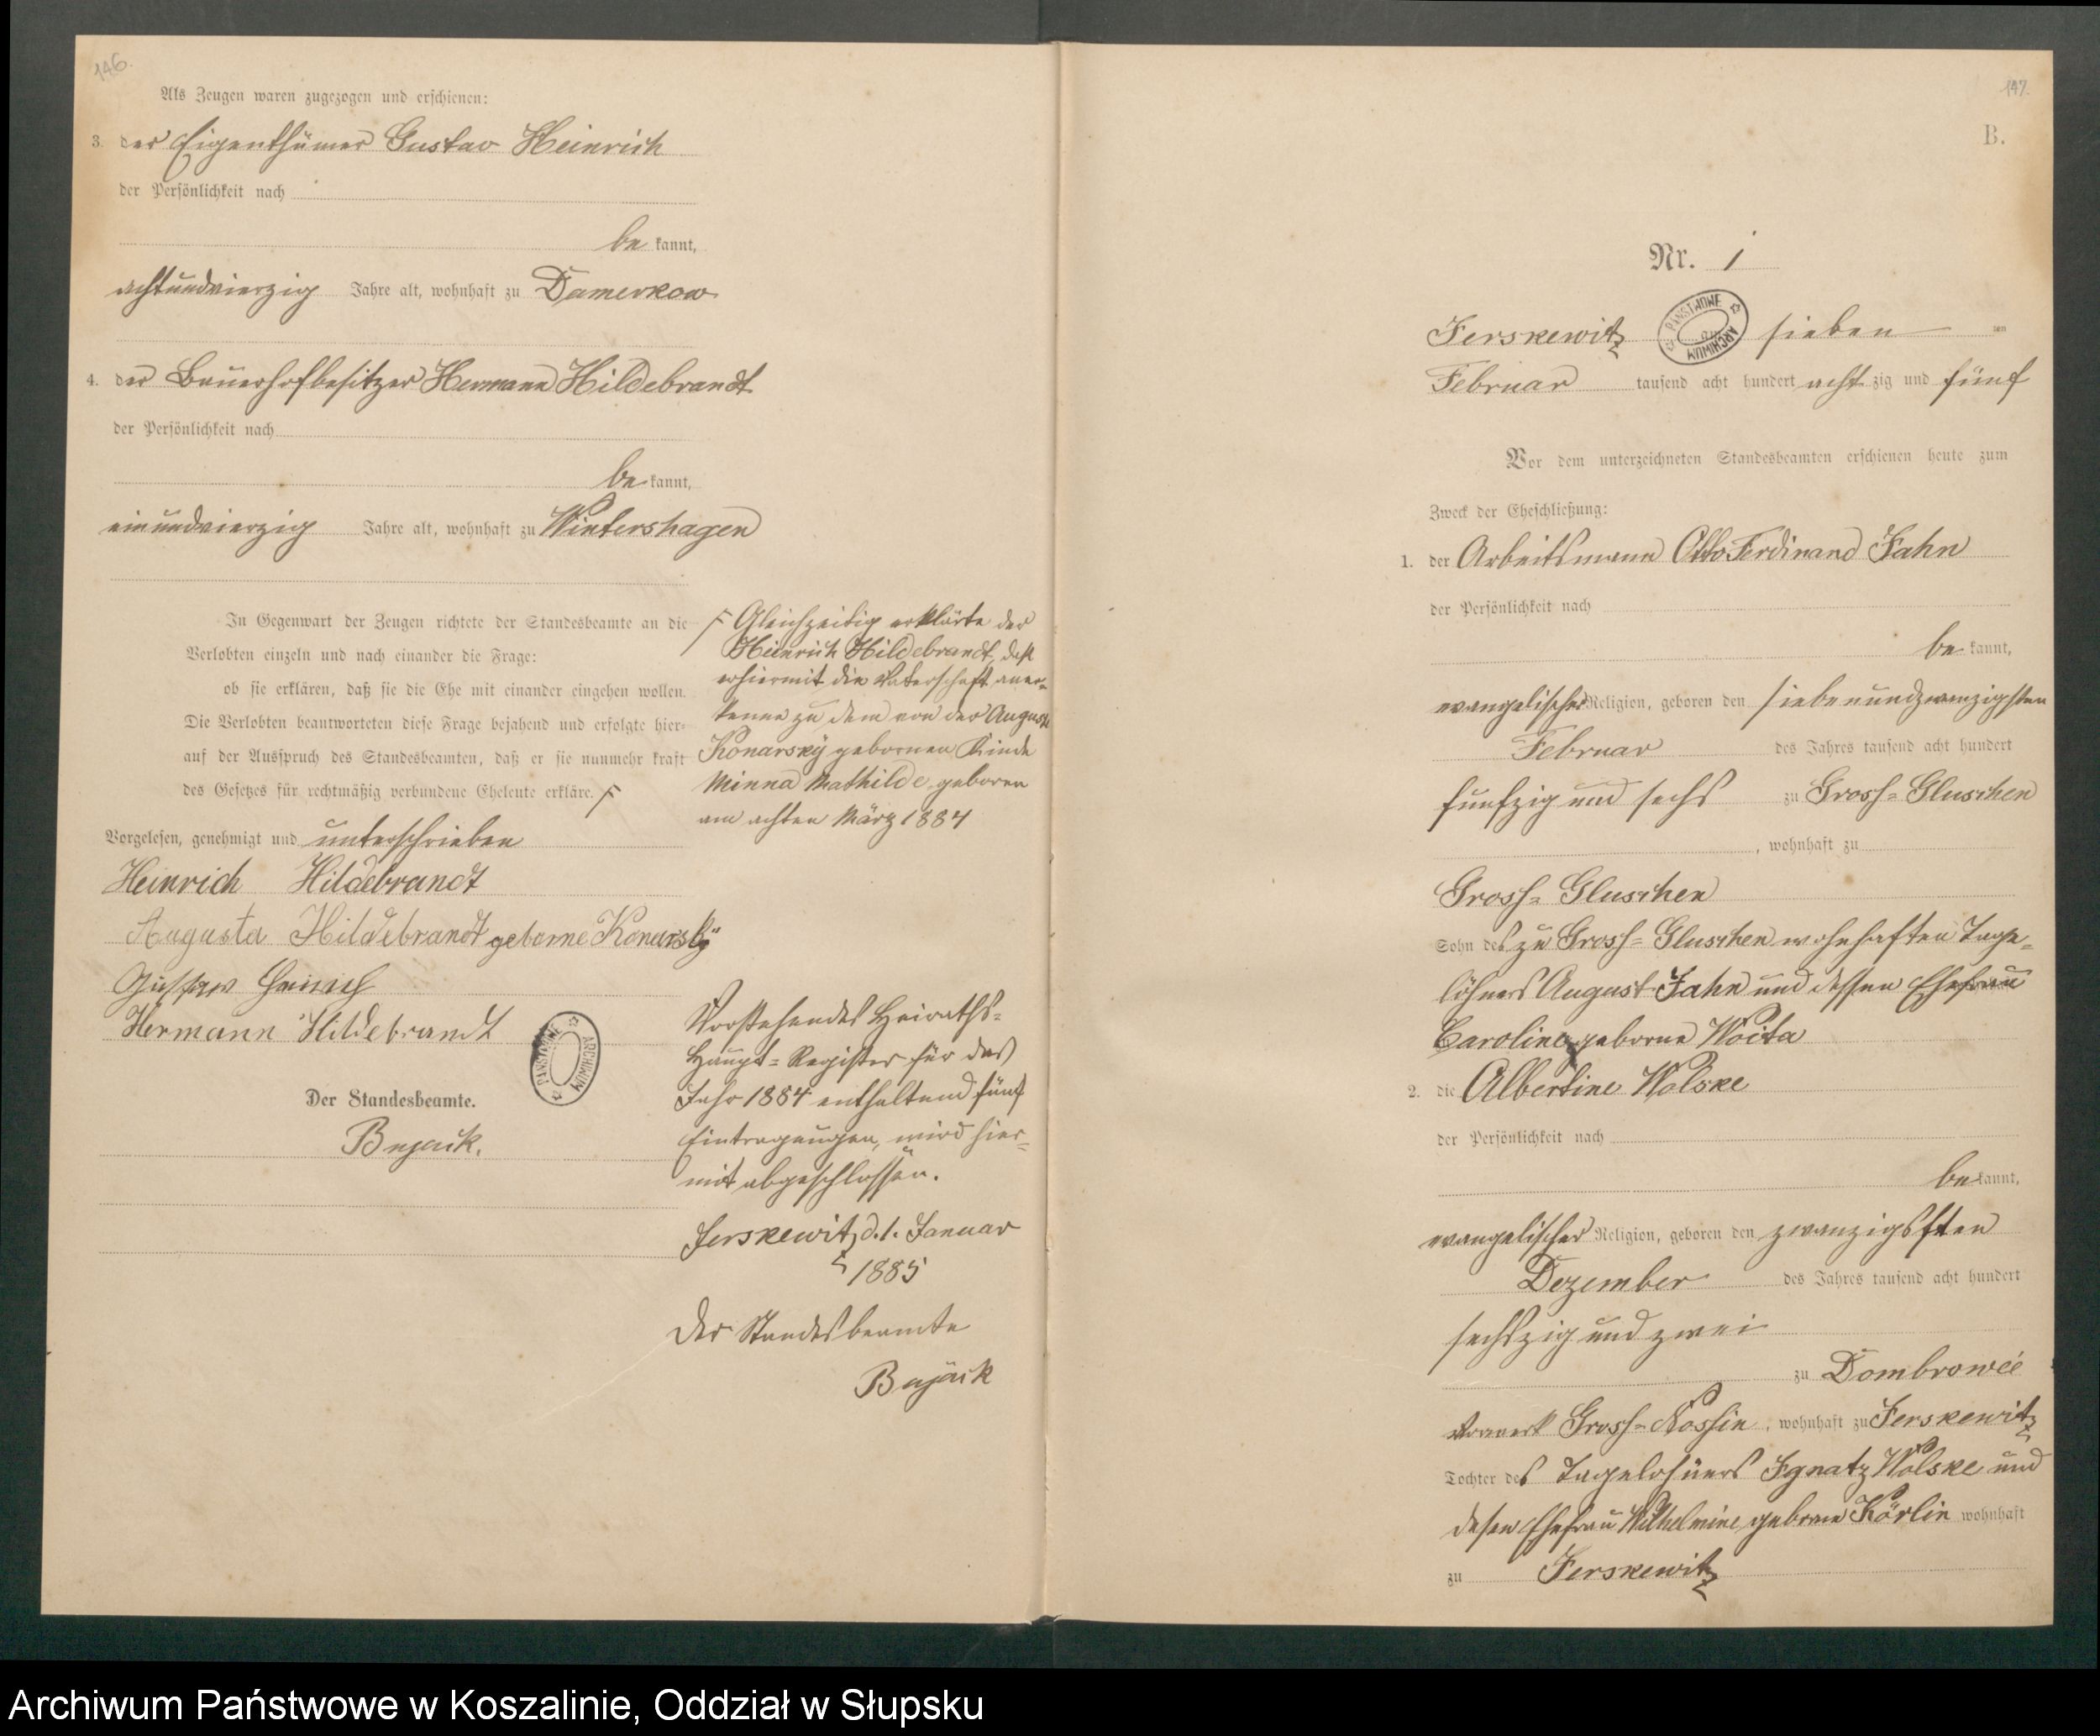 146.
Als Zeugen waren zugezogen und erschienen:
3. der Eigenthümer Gustav Heinrich
der Persönlichkeit nach
be kannt,
achtundvierzig Jahre alt, wohnhaft zu Damerkow
4. der Bauerhofbesitzer Hermann Hildebrandt
der Persönlichkeit nach
be kannt,
einundvierzig Jahre alt, wohnhaft zu Wintershagen
In Gegenwart der Zeugen richtete der Standesbeamte an die
Verlobten einzeln und nach einander die Frage:
ob sie erklären, daß sie die Ehe mit einander eingehen wollen.
Die Verlobten beantworteten diese Frage bejahend und erfolgte hier-
auf der Ausspruch des Standesbeamten, daß er sie nunmehr kraft
des Gesetzes für rechtmäßig verbundene Eheleute erkläre.
Gleichzeitig erklärte der
Heinrich Hildebrandt, daß
er hiermit die Vaterschaft aner-
kenne zu dem von der Auguste
Konarsky gebornen Kinde
Minna Mathilde, geboren
am achten März 1884
Vorgelesen, genehmigt und unterschrieben
Heinrich Hildebrandt
Augusta Hildebrandt geborne Konarsky
Gustav Heinrich
Hermann Hildebrandt
Der Standesbeamte.
Bujack.
Vorstehendes Heiraths-
Haupt-Register für das
Jahr 1884 enthaltend fünf
Eintragungen, wird hier-
mit abgeschlossen.
Jerskewitz d. 1. Januar
1885
Der Standesbeamte
Bujack
PANSTWOWE ARCHIWUM
147.
B.
Nr. 1
Jerskewitz sieben ten
PANSTWOWE ARCHIWUM
Februar tausend acht hundert acht zig und fünf
Vor dem unterzeichneten Standesbeamten erschienen heute zum
Zweck der Eheschließung:
1. der Arbeitsmann Otto Ferdinand Jahn
der Persönlichkeit nach
be kannt,
evangelischer Religion, geboren den siebenundzwanzigsten
Februar des Jahres tausend acht hundert
funfzig und sechs zu Gross-Gluschen
, wohnhaft zu
Gross-Gluschen
Sohn des zu Gross-Gluschen wohnhaften Tage-
löhners August Jahn und dessen Ehefrau
Caroline geborne Woita
2. die Albertine Wolske
der Persönlichkeit nach
be kannt,
evangelischer Religion, geboren den zwanzigsten
Dezember des Jahres tausend acht hundert
sechszig und zwei
zu Dombrowée
Vorwerk Gross-Nossin, wohnhaft zu Jerskewitz
Tochter des Tagelöhners Ignatz Wolske und
dessen Ehefrau Wilhelmine geborne Körlin wohnhaft
zu Jerskewitz
Archiwum Państwowe w Koszalinie, Oddział w Słupsku